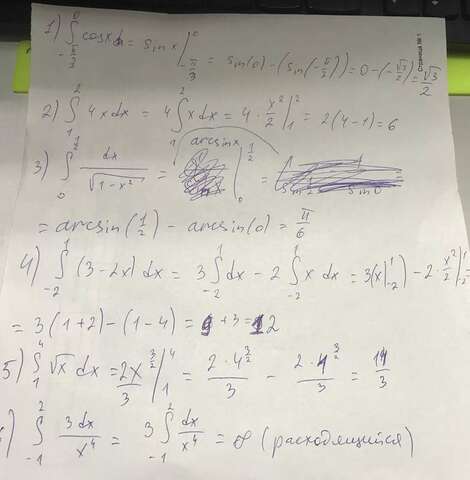 1) ∫_{-π/3}^{0} cosxdx = sin x |_{-π/3}^{0} = sin(0) - (sin(-π/3)) = 0 - (-√3/2) = √3/2
Страница № 1
2) ∫_{1}^{2} 4xdx = 4∫_{1}^{2} xdx = 4 · x²/2 |_{1}^{2} = 2(4-1) = 6
3) ∫_{0}^{1/2} dx/√(1-x²) = arcsinx |_{0}^{1/2} =
= arcsin(1/2) - arcsin(0) = π/6
4) ∫_{-2}^{1} (3-2x) dx = 3∫_{-2}^{1} dx - 2∫_{-2}^{1} x dx = 3(x|_{-2}^{1}) - 2 · x²/2 |_{-2}^{1} =
= 3(1+2) - (1-4) = 9 + 3 = 12
5) ∫_{1}^{4} √x dx = 2x^{3/2}/3 |_{1}^{4} = 2·4^{3/2}/3 - 2·1^{3/2}/3 = 14/3
∫_{-1}^{2} 3dx/x⁴ = 3∫_{-1}^{2} dx/x⁴ = ∞ (расходящийся)